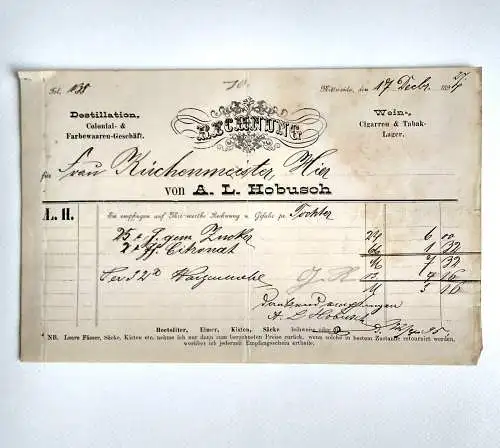 Fol. 138
Mittweida, den 17 Decbr. 189
Destillation,
Colonial- &
Farbewaaren-Geschäft.
RECHNUNG
Wein-,
Cigarren & Tabak-
Lager.
für Frau Kirchenmeister, Hier
von A. L. Hobusch
Sie empfingen auf Ihre werthe Rechnung u. Gefahr pr. Tochter
25 # gem Zucker 24 6 00
2 # ff. Citronat 1 32
7 32
Waizenmehl 4 16
3 16
dankend empfangen
A L Hobusch
Hectoliter, Eimer, Kisten, Säcke
NB. Leere Fässer, Säcke, Kisten etc. nehme ich nur dann zum berechneten Preise zurück, wenn solche in bestem Zustande retournirt werden,
worüber ich jederzeit Empfangsschein ertheile.